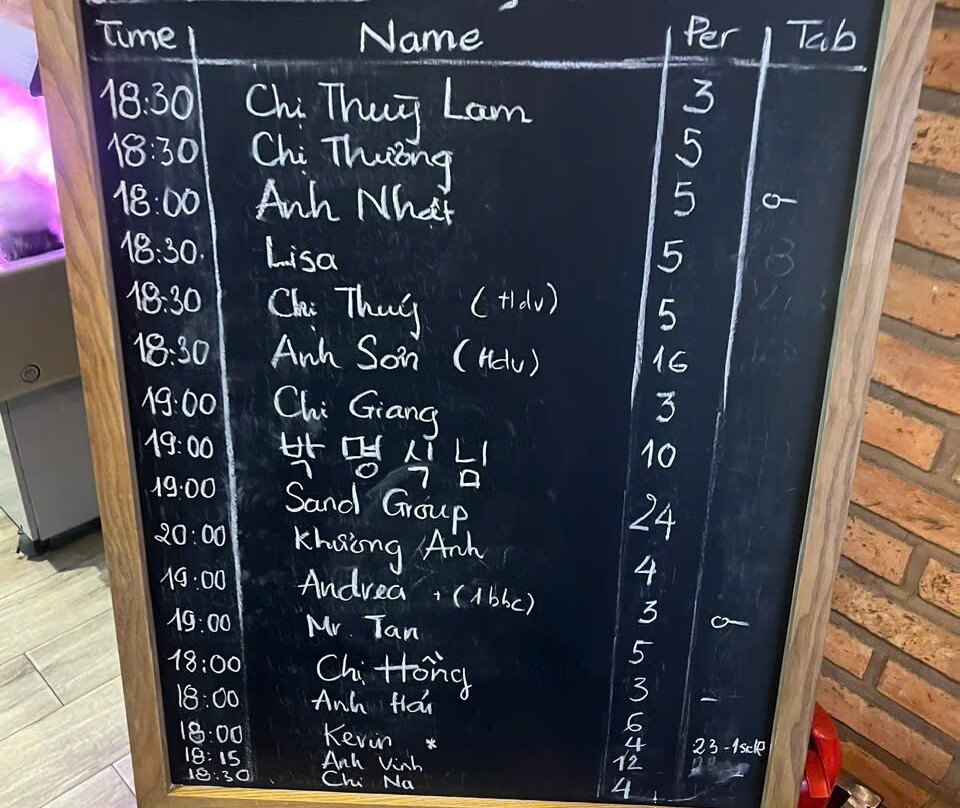 Time Name Per Tab
18:30 Chị Thuỳ Lam 3
18:30 Chị Thường 5
18:00 Anh Nhật 5
18:30 Lisa 5
18:30 Chị Thuý (Hdv) 5
18:30 Anh Sơn (Hdv) 16
19:00 Chi Giang 3
19:00 박명식님 10
19:00 Sand Group 24
20:00 Khương Anh 4
19:00 Andrea + (1bbc) 3
19:00 Mr. Tan 5
18:00 Chị Hồng 3
18:00 Anh Hải 6
18:00 Kevin * 4 23-1
18:15 Anh Vinh 12
18:30 Chi Na 4